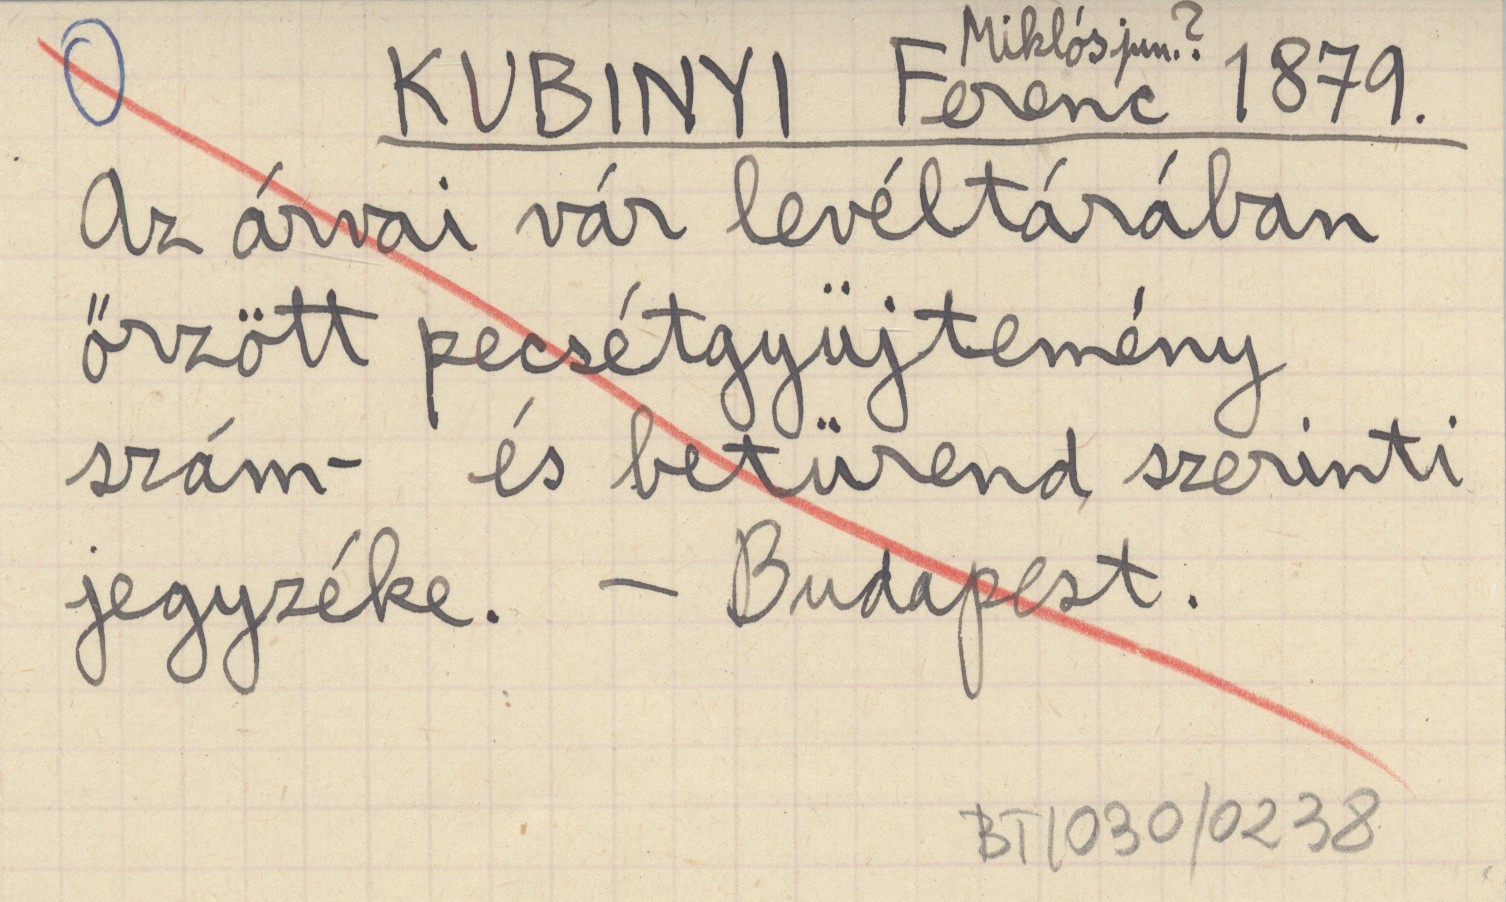 Miklós jun.?
KUBINYI Ferenc 1879.
Az árvai vár levéltárában
őrzött pecsétgyüjtemény
szám- és betürend szerinti
jegyzéke. — Budapest.
BT/030/0238